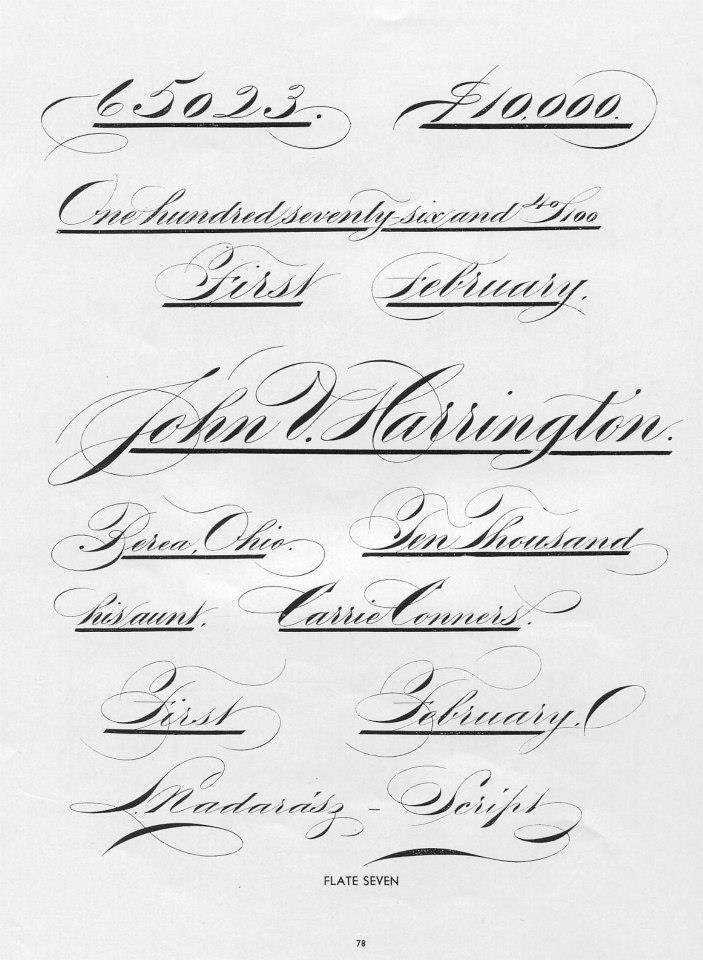 65023. $10,000.
One hundred seventy-six and 40/100
First February.
John D. Harrington.
Berea, Ohio. Ten Thousand
his aunt, Carrie Conners.
First February.
L. Madarász - Script
FLATE SEVEN
78